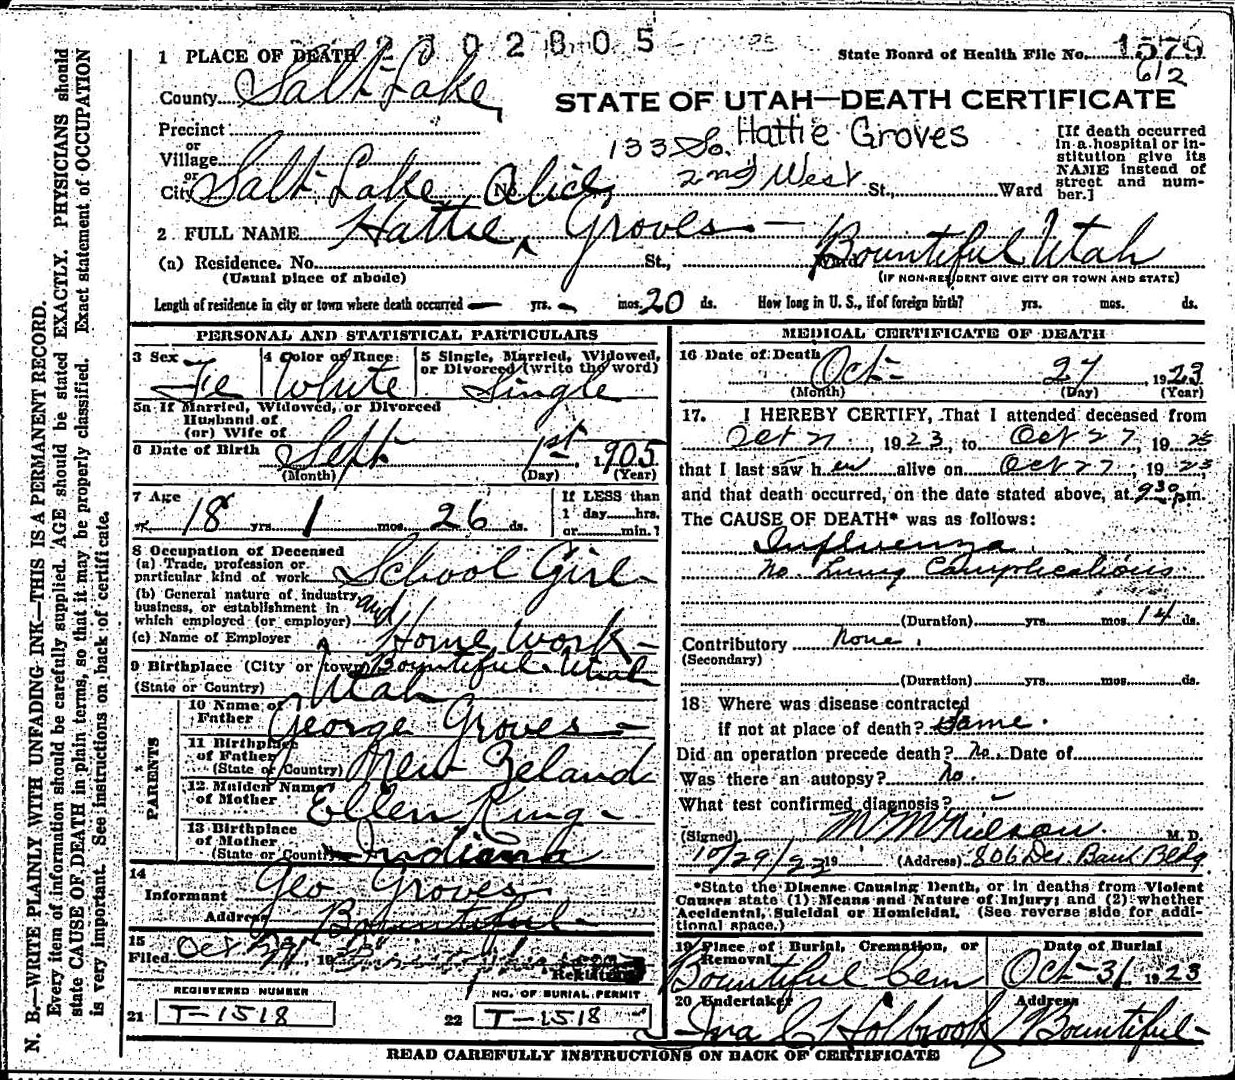 2302805
1 PLACE OF DEATH
State Board of Health File No. 1579
612
County Salt Lake
STATE OF UTAH—DEATH CERTIFICATE
Precinct
or
Village
or
City Salt Lake No. 133 So. 2nd West St., Ward
Hattie Groves
[If death occurred in a hospital or institution give its NAME instead of street and number.]
Alice
2 FULL NAME Hattie ‸ Groves —
(a) Residence. No. St., Ward. Bountiful Utah
(Usual place of abode)
(IF NON-RESIDENT GIVE CITY OR TOWN AND STATE)
Length of residence in city or town where death occurred — yrs. — mos. 20 ds. How long in U. S., if of foreign birth? yrs. mos. ds.
PERSONAL AND STATISTICAL PARTICULARS
3 Sex Fe
4 Color or Race: White
5 Single, Married, Widowed, or Divorced (write the word) Single
5a If Married, Widowed, or Divorced
Husband of
(or) Wife of
6 Date of Birth Sept 1st, 1905
(Month) (Day) (Year)
7 Age 18 yrs. 1 mos. 26 ds.
If LESS than
1 day hrs.
or min.?
8 Occupation of Deceased
(a) Trade, profession or particular kind of work School Girl
(b) General nature of industry, business, or establishment in which employed (or employer) and Home Work
(c) Name of Employer
9 Birthplace (City or town) Bountiful Utah
(State or Country) Utah
PARENTS
10 Name of Father George Groves
11 Birthplace of Father (State or Country) New Zeland
12 Maiden Name of Mother Ellen King
13 Birthplace of Mother (State or Country) Indiana
14
Informant Geo Groves
Address Bountiful
15
Filed Oct 19
Registrar
REGISTERED NUMBER
21 T-1518
NO. OF BURIAL PERMIT
22 T-1518
MEDICAL CERTIFICATE OF DEATH
16 Date of Death Oct 27, 1923
(Month) (Day) (Year)
17. I HEREBY CERTIFY, That I attended deceased from
Oct 21, 1923, to Oct 27, 1923
that I last saw her alive on Oct 27, 1923
and that death occurred, on the date stated above, at 9 30 p.m.
The CAUSE OF DEATH* was as follows:
Influenza.
No Lung Complications
(Duration) yrs. mos. 14 ds.
Contributory None.
(Secondary)
(Duration) yrs. mos. ds.
18 Where was disease contracted
if not at place of death? Same.
Did an operation precede death? No. Date of
Was there an autopsy? No.
What test confirmed diagnosis? —
(Signed) M M Nielson M. D.
10/29/23 19 (Address) 806 Des Bank Bldg
*State the Disease Causing Death, or in deaths from Violent Causes state (1) Means and Nature of Injury; and (2) whether Accidental, Suicidal or Homicidal. (See reverse side for additional space.)
19 Place of Burial, Cremation, or Removal Bountiful Cem
Date of Burial Oct 31 1923
20 Undertaker Ira C Holbrook
Address Bountiful
READ CAREFULLY INSTRUCTIONS ON BACK OF CERTIFICATE
N. B.—WRITE PLAINLY WITH UNFADING INK—THIS IS A PERMANENT RECORD.
Every item of information should be carefully supplied. AGE should be stated EXACTLY. PHYSICIANS should
state CAUSE OF DEATH in plain terms, so that it may be properly classified. Exact statement of OCCUPATION
is very important. See instructions on back of certificate.